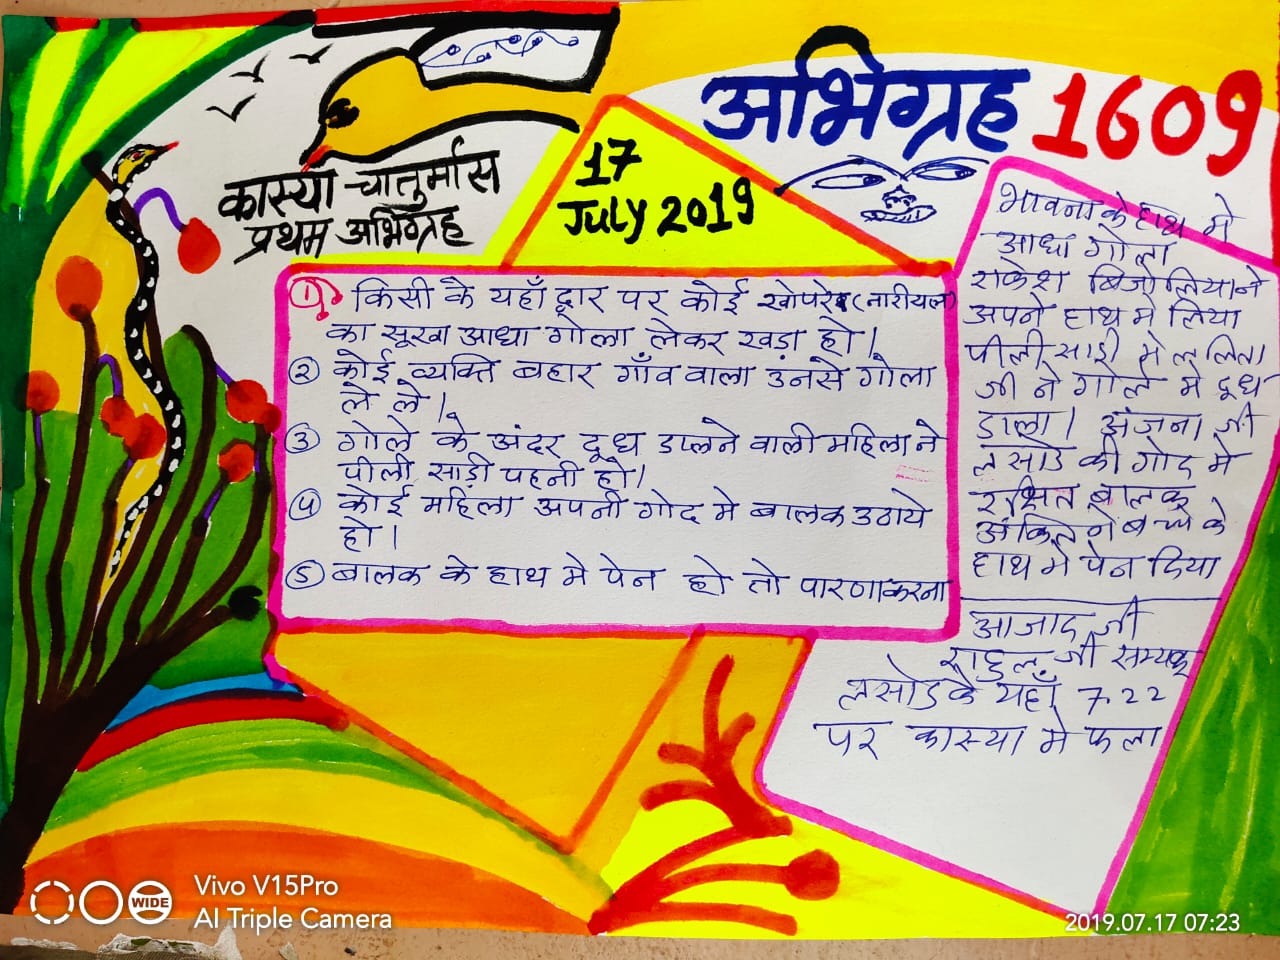 अभिग्रह 1609
कास्या चातुर्मास
प्रथम अभिग्रह
17
July 2019
① किसी के यहाँ द्वार पर कोई खोपरे (नारीयल)
का सूखा आधा गोला लेकर खड़ा हो।
② कोई व्यक्ति बहार गाँव वाला उनसे गोला
ले ले।
③ गोले के अंदर दूध डालने वाली महिला ने
पीली साड़ी पहनी हो।
④ कोई महिला अपनी गोद मे बालक उठाये
हो।
⑤ बालक के हाथ मे पेन हो तो पारणा करना
भावना के हाथ मे
आधा गोला
राकेश बिजोलिया ने
अपने हाथ मे लिया
पीली साड़ी मे ललिता
जी ने गोले मे दूध
डाला। अंजना जी
लसोड की गोद मे
रक्षित बालक
अंकित ने बच्चे के
हाथ मे पेन दिया
आजाद जी
राहुल जी सम्यक
लसोड के यहाँ 7.22
पर कास्या मे फला
Vivo V15Pro
WIDE
AI Triple Camera
2019.07.17 07:23